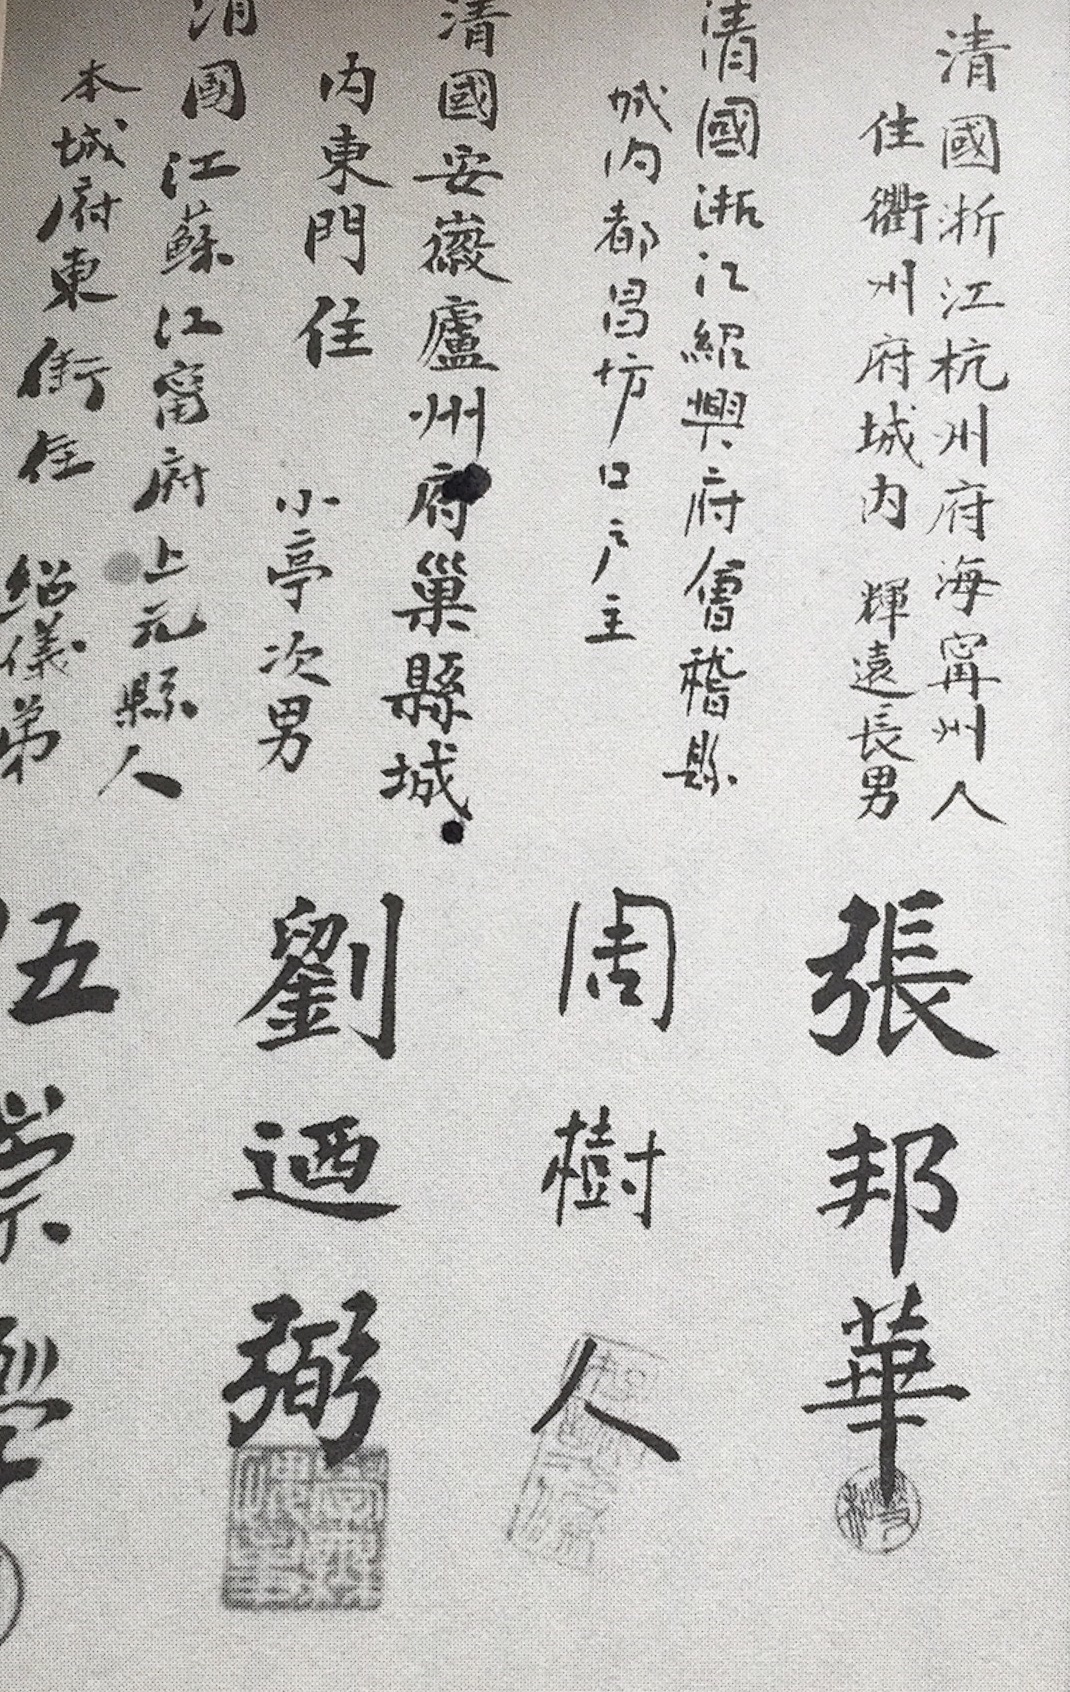 清國浙江杭州府海甯州人
住衢州府城内 輝遠長男
張邦華
清國浙江紹興府會稽縣
城内都昌坊口戸主
周樹人
清國安徽廬州府巢縣城
内東門住 小亭次男
劉迺弼
清國江蘇江甯府上元縣人
本城府東街住 紹儀弟
伍崇